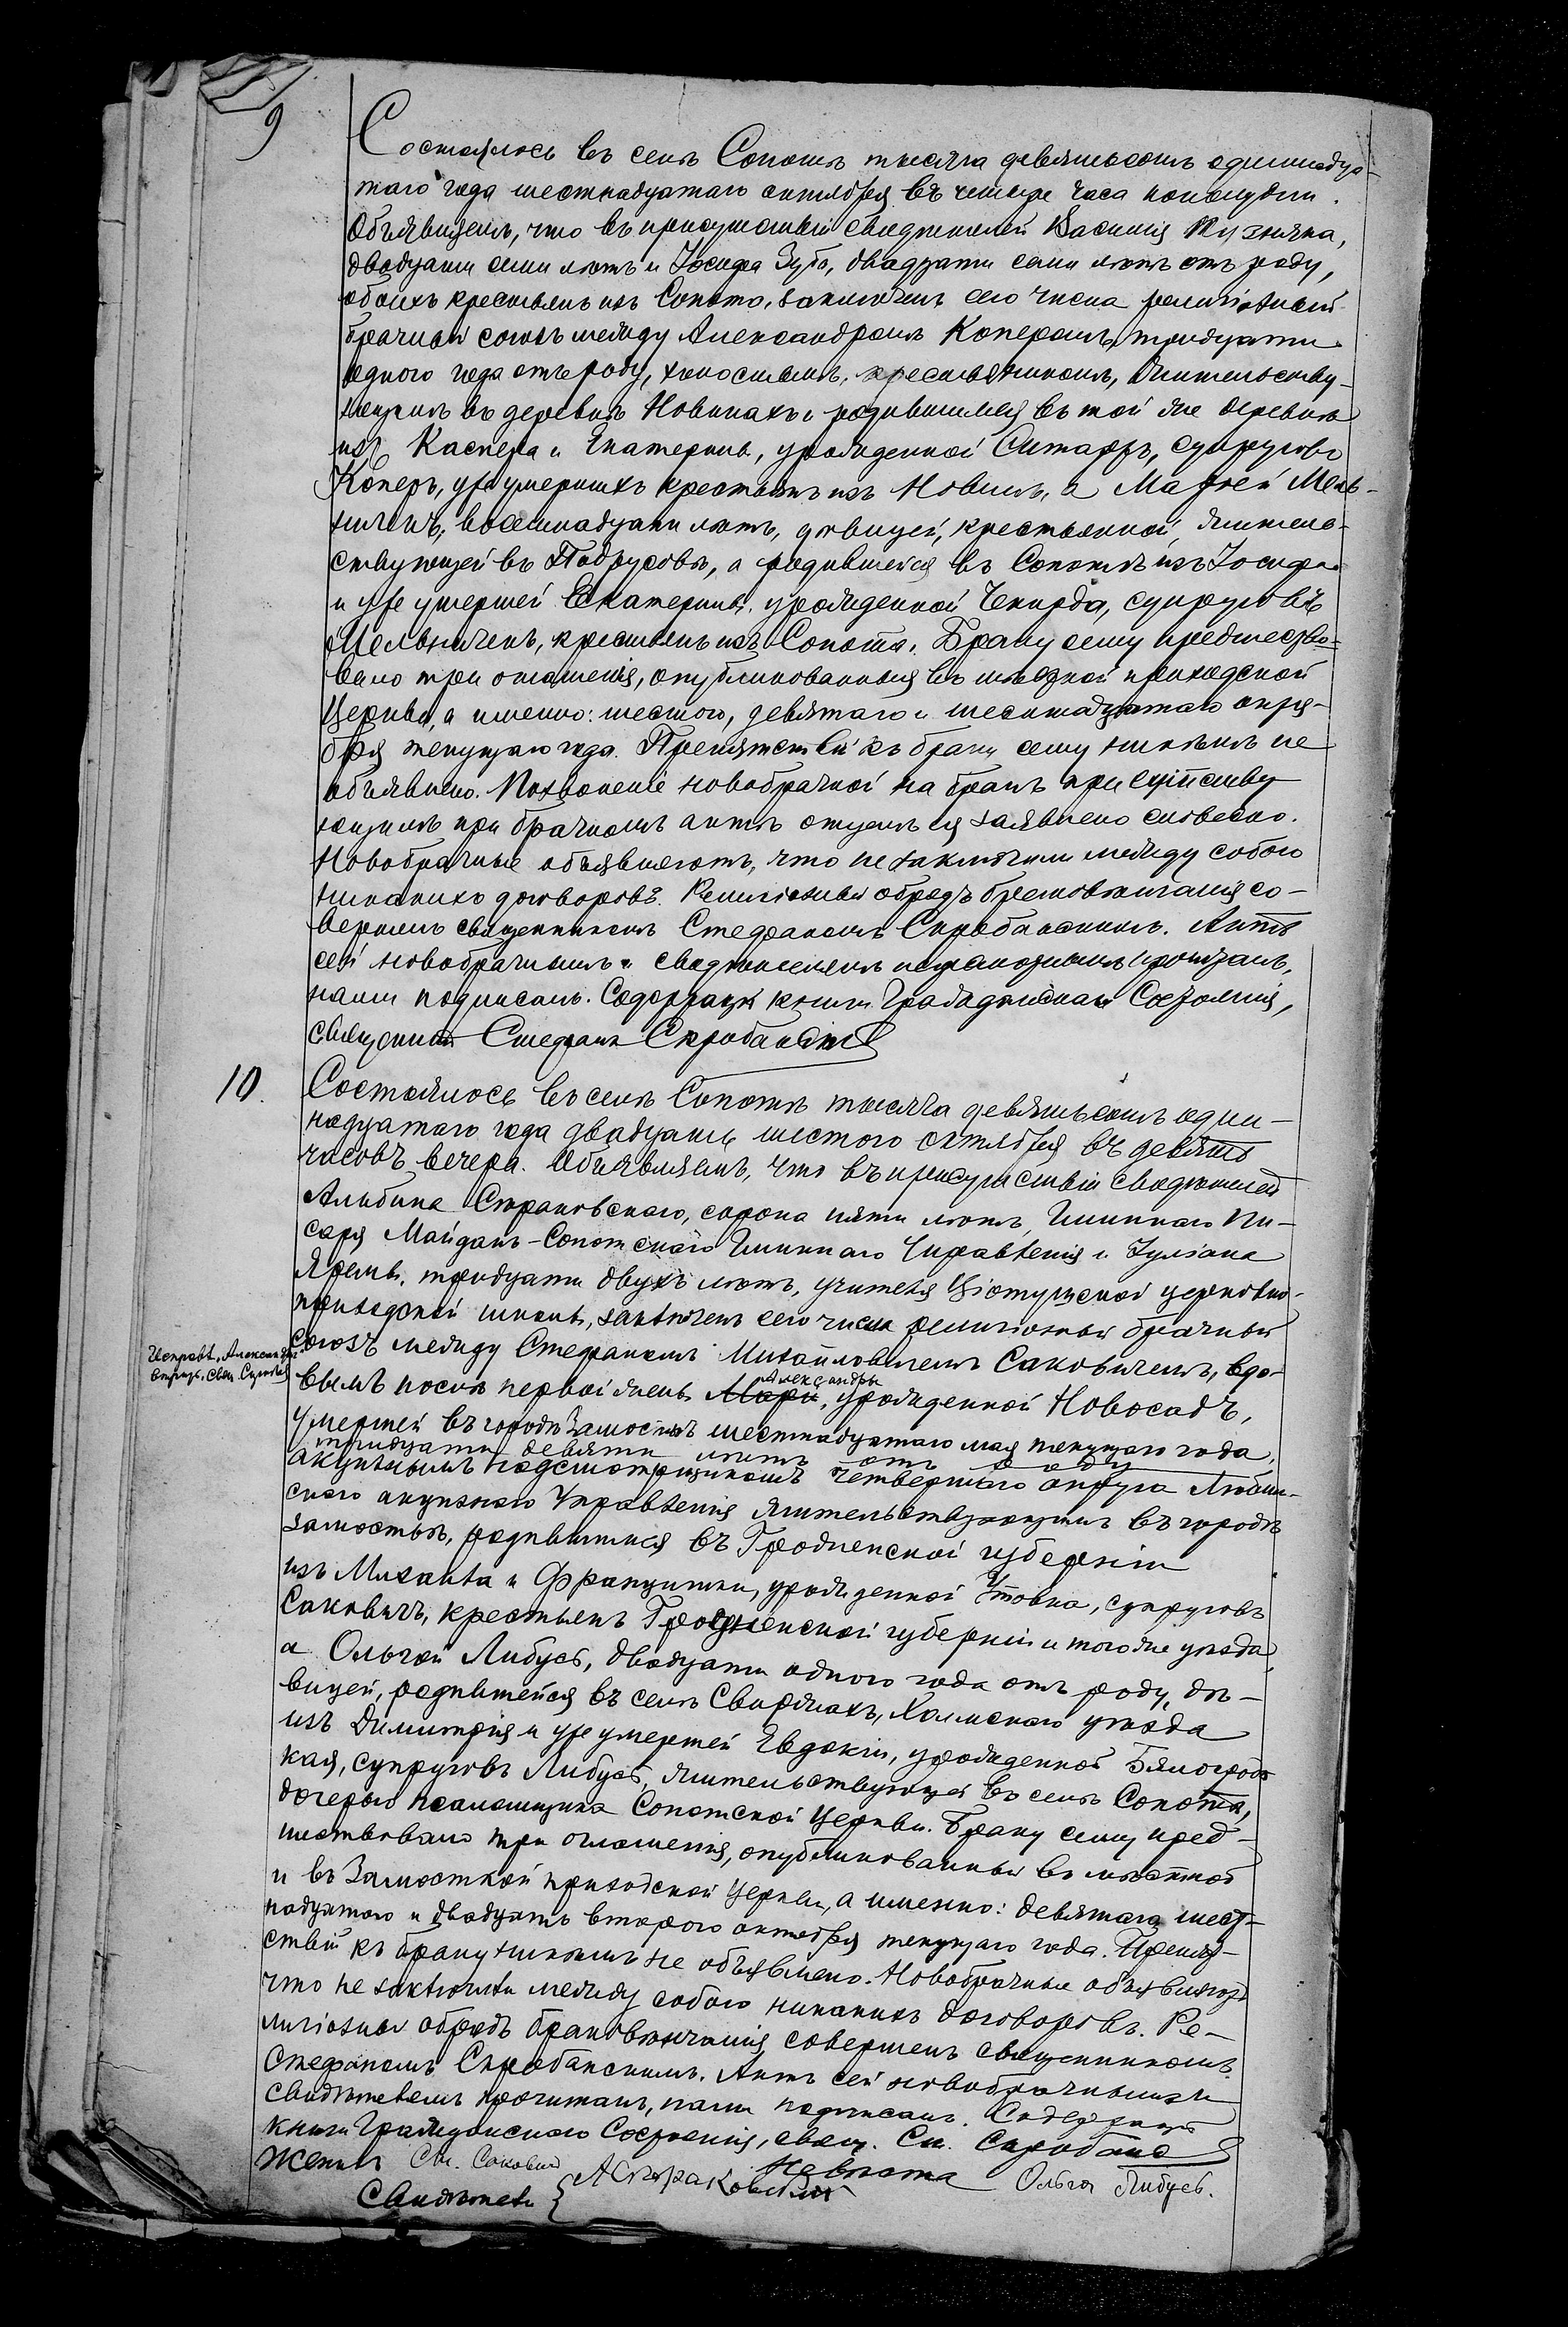 9
Состоялось въ селѣ Сопотѣ тысяча девятьсотъ одиннадца-
таго года шестнадцатаго октября въ четыре часа пополудни.
Объявляемъ, что въ присутствіи свидѣтелей Василія Кузняка,
двадцати семи лѣтъ и Іосифа Зуба, двадцати семи лѣтъ отъ роду,
обоихъ крестьянъ изъ Сопота, заключенъ сего числа религіозный
брачный союзъ между Александромъ Коперомъ, тридцати
одного года отъ роду, холостымъ, крестьяниномъ, жительству-
ющимъ въ деревнѣ Новинахъ и родившимся въ той же деревнѣ
изъ Каспера и Екатерины, урожденной Ситаръ, супруговъ
Коперъ, уже умершихъ крестьянъ изъ Новинъ, а Маріей Мель-
ничекъ, восемнадцати лѣтъ, дѣвицей, крестьянкой, житель-
ствующей въ , а родившейся въ Сопотѣ изъ Іосифа
и уже умершей Екатерины, урожденной Чекирда, супруговъ
Мельничекъ, крестьянъ изъ Сопота. Браку сему предшество-
вало три оглашенія, опубликованныя въ мѣстной приходской
Церкви, а именно: шестого, девятаго и шестнадцатаго октя-
бря текущаго года. Препятствій къ браку сему никѣмъ не
объявлено. Позволеніе новобрачной на бракъ присутству
ющимъ при брачномъ актѣ отцемъ ея заявлено словесно.
Новобрачные объявляютъ, что не заключили между собою
никакихъ договоровъ. Религіозный обрядъ бракосочетанія со-
вершенъ священникомъ Стефаномъ Скробанскимъ. Актъ
сей новобрачнымъ и свидѣтелямъ неграмотнымъ прочитанъ,
нами подписанъ. Содержащій книги Гражданскаго Состоянія,
священникъ Стефанъ Скробанскій
10.
Состоялось въ селѣ Сопотѣ тысяча девятьсотъ один-
надцатаго года двадцать шестого октября въ девять
часовъ вечера. Объявляемъ, что въ присутствіи свидѣтелей
Альбина Страковскаго, сорока пяти лѣтъ, Гминнаго Пи-
саря Майданъ-Сопотскаго Гминнаго Управленія и Іуліана
Яремы, тридцати двухъ лѣтъ, учителя церковно-
приходской школы, заключенъ сего числа религіозный брачный
союзъ между Стефаномъ Михайловичемъ Саковичемъ, вдо-
Исправл. Александры
вѣрно. Свящ.
Александры
вымъ послѣ первой жены Маріи, урожденной Новосадъ,
умершей въ городѣ Замостьѣ шестнадцатаго мая текущаго года,
тридцати девяти лѣтъ отъ роду
акцизнымъ надсмотрщикомъ четвертаго округа Люблин-
скаго акцизнаго Управленія жительствующимъ въ городѣ
Замостьѣ, родившимся въ Гродненской губерніи
изъ Михаила и Францишки, урожденной , супруговъ
Саковичъ, крестьянъ Гродненской губерніи и того же уѣзда,
а Ольгой Либусь, двадцати одного года отъ роду, дѣ-
вицей, родившейся въ селѣ Свиржахъ, Холмскаго уѣзда
изъ Димитрія и уже умершей Евдокіи, урожденной Бялогродс
кая, супруговъ Либусь, жительствующей въ селѣ Сопотѣ,
дочерью псаломщика Сопотской Церкви. Браку сему пред-
шествовало три оглашенія, опубликованныя въ мѣстной
и въ Замостской приходской Церкви, а именно: девятаго, шест-
надцатаго и двадцать второго октября текущаго года. Препят-
ствій къ браку никѣмъ не объявлено. Новобрачные объявляютъ
что не заключили между собою никакихъ договоровъ. Ре-
лигіозный обрядъ бракосочетанія совершенъ священникомъ
Стефаномъ Скробанскимъ. Актъ сей новобрачнымъ и
свидѣтелямъ прочитанъ, нами подписанъ. Содержащій
книги Гражданскаго Состоянія, свящ. Ст. Скробанс
Женихъ Ст. Саковичъ Невѣста Ольга Либусь.
Свидѣтели { АСтраковскій